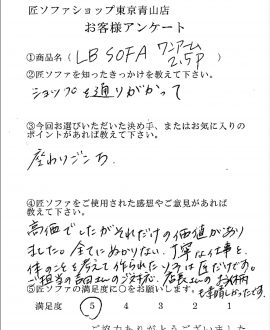 匠ソファショップ東京青山店
お客様アンケート
①商品名( LB SOFA ワンアーム 2.5P )
②匠ソファを知ったきっかけを教えて下さい。
ショップを通りがかって
③今回お選びいただいた決め手、またはお気に入りの
ポイントがあれば教えて下さい。
座わりごこち。
④匠ソファをご使用された感想やご意見があれば
教えて下さい。
高価でしたがそれだけの価値があり
ました。全てにぬかりない、丁寧な仕事と、
体のことを考えて作られたソファは匠だけです。
ご担当の
店長さんの
も素晴しかったです。
⑤匠ソファの満足度に○をお願いします。
満足度 5 4 3 2 1
ご協力ありがとうございました